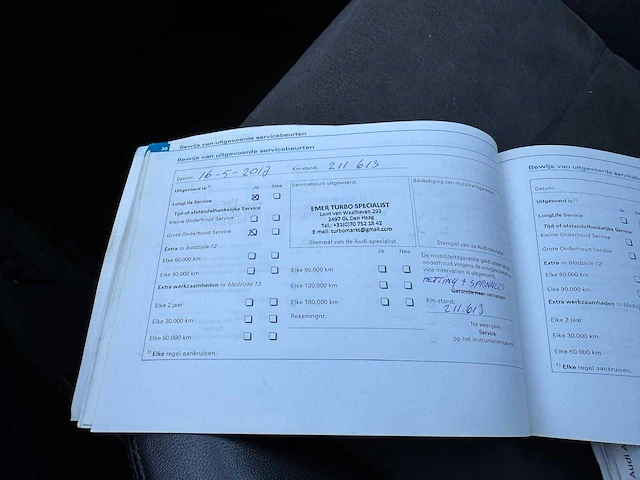 30 Bewijs van uitgevoerde servicebeurten
Bewijs van uitgevoerde servicebeurten
Datum: 16-5-2012 Km-stand: 211.613
Uitgevoerd is:¹⁾ Ja Nee
LongLife Service
Tijd of afstandafhankelijke Service
Kleine Onderhoud Service
Grote Onderhoud Service
Extra ⇒ bladzijde 12
Elke 60.000 km
Elke 90.000 km
Extra werkzaamheden ⇒ bladzijde 13
Elke 2 jaar
Elke 30.000 km
Elke 60.000 km
¹⁾ Elke regel aankruisen.
Servicebeurt uitgevoerd:
EMER TURBO SPECIALIST
Laan van Waalhaven 253
2497 GL Den Haag
Tel.: +31(0)70 752 18 42
E-mail: turbomarks@gmail.com
Stempel van de Audi-specialist
Ja Nee
Elke 90.000 km
Elke 120.000 km
Elke 180.000 km
Rekeningnr.
Bevestiging van mobiliteitsgarantie
Stempel van de Audi-specialist
De mobiliteitsgarantie geldt
onderhoud volgens de
vice-intervallen is uitgevoerd.
Km-stand:
211.613
Na weergave
Service
op het instrumentenpaneel
Bewijs van uitgevoerde
Datum:
Uitgevoerd is:¹⁾
LongLife Service
Tijd of afstandafhankelijke
Kleine Onderhoud Service
Grote Onderhoud Service
Extra ⇒ bladzijde 12
Elke 60.000 km
Elke 90.000 km
Extra werkzaamheden ⇒
Elke 2 jaar
Elke 30.000 km
Elke 60.000 km
¹⁾ Elke regel aankruisen.